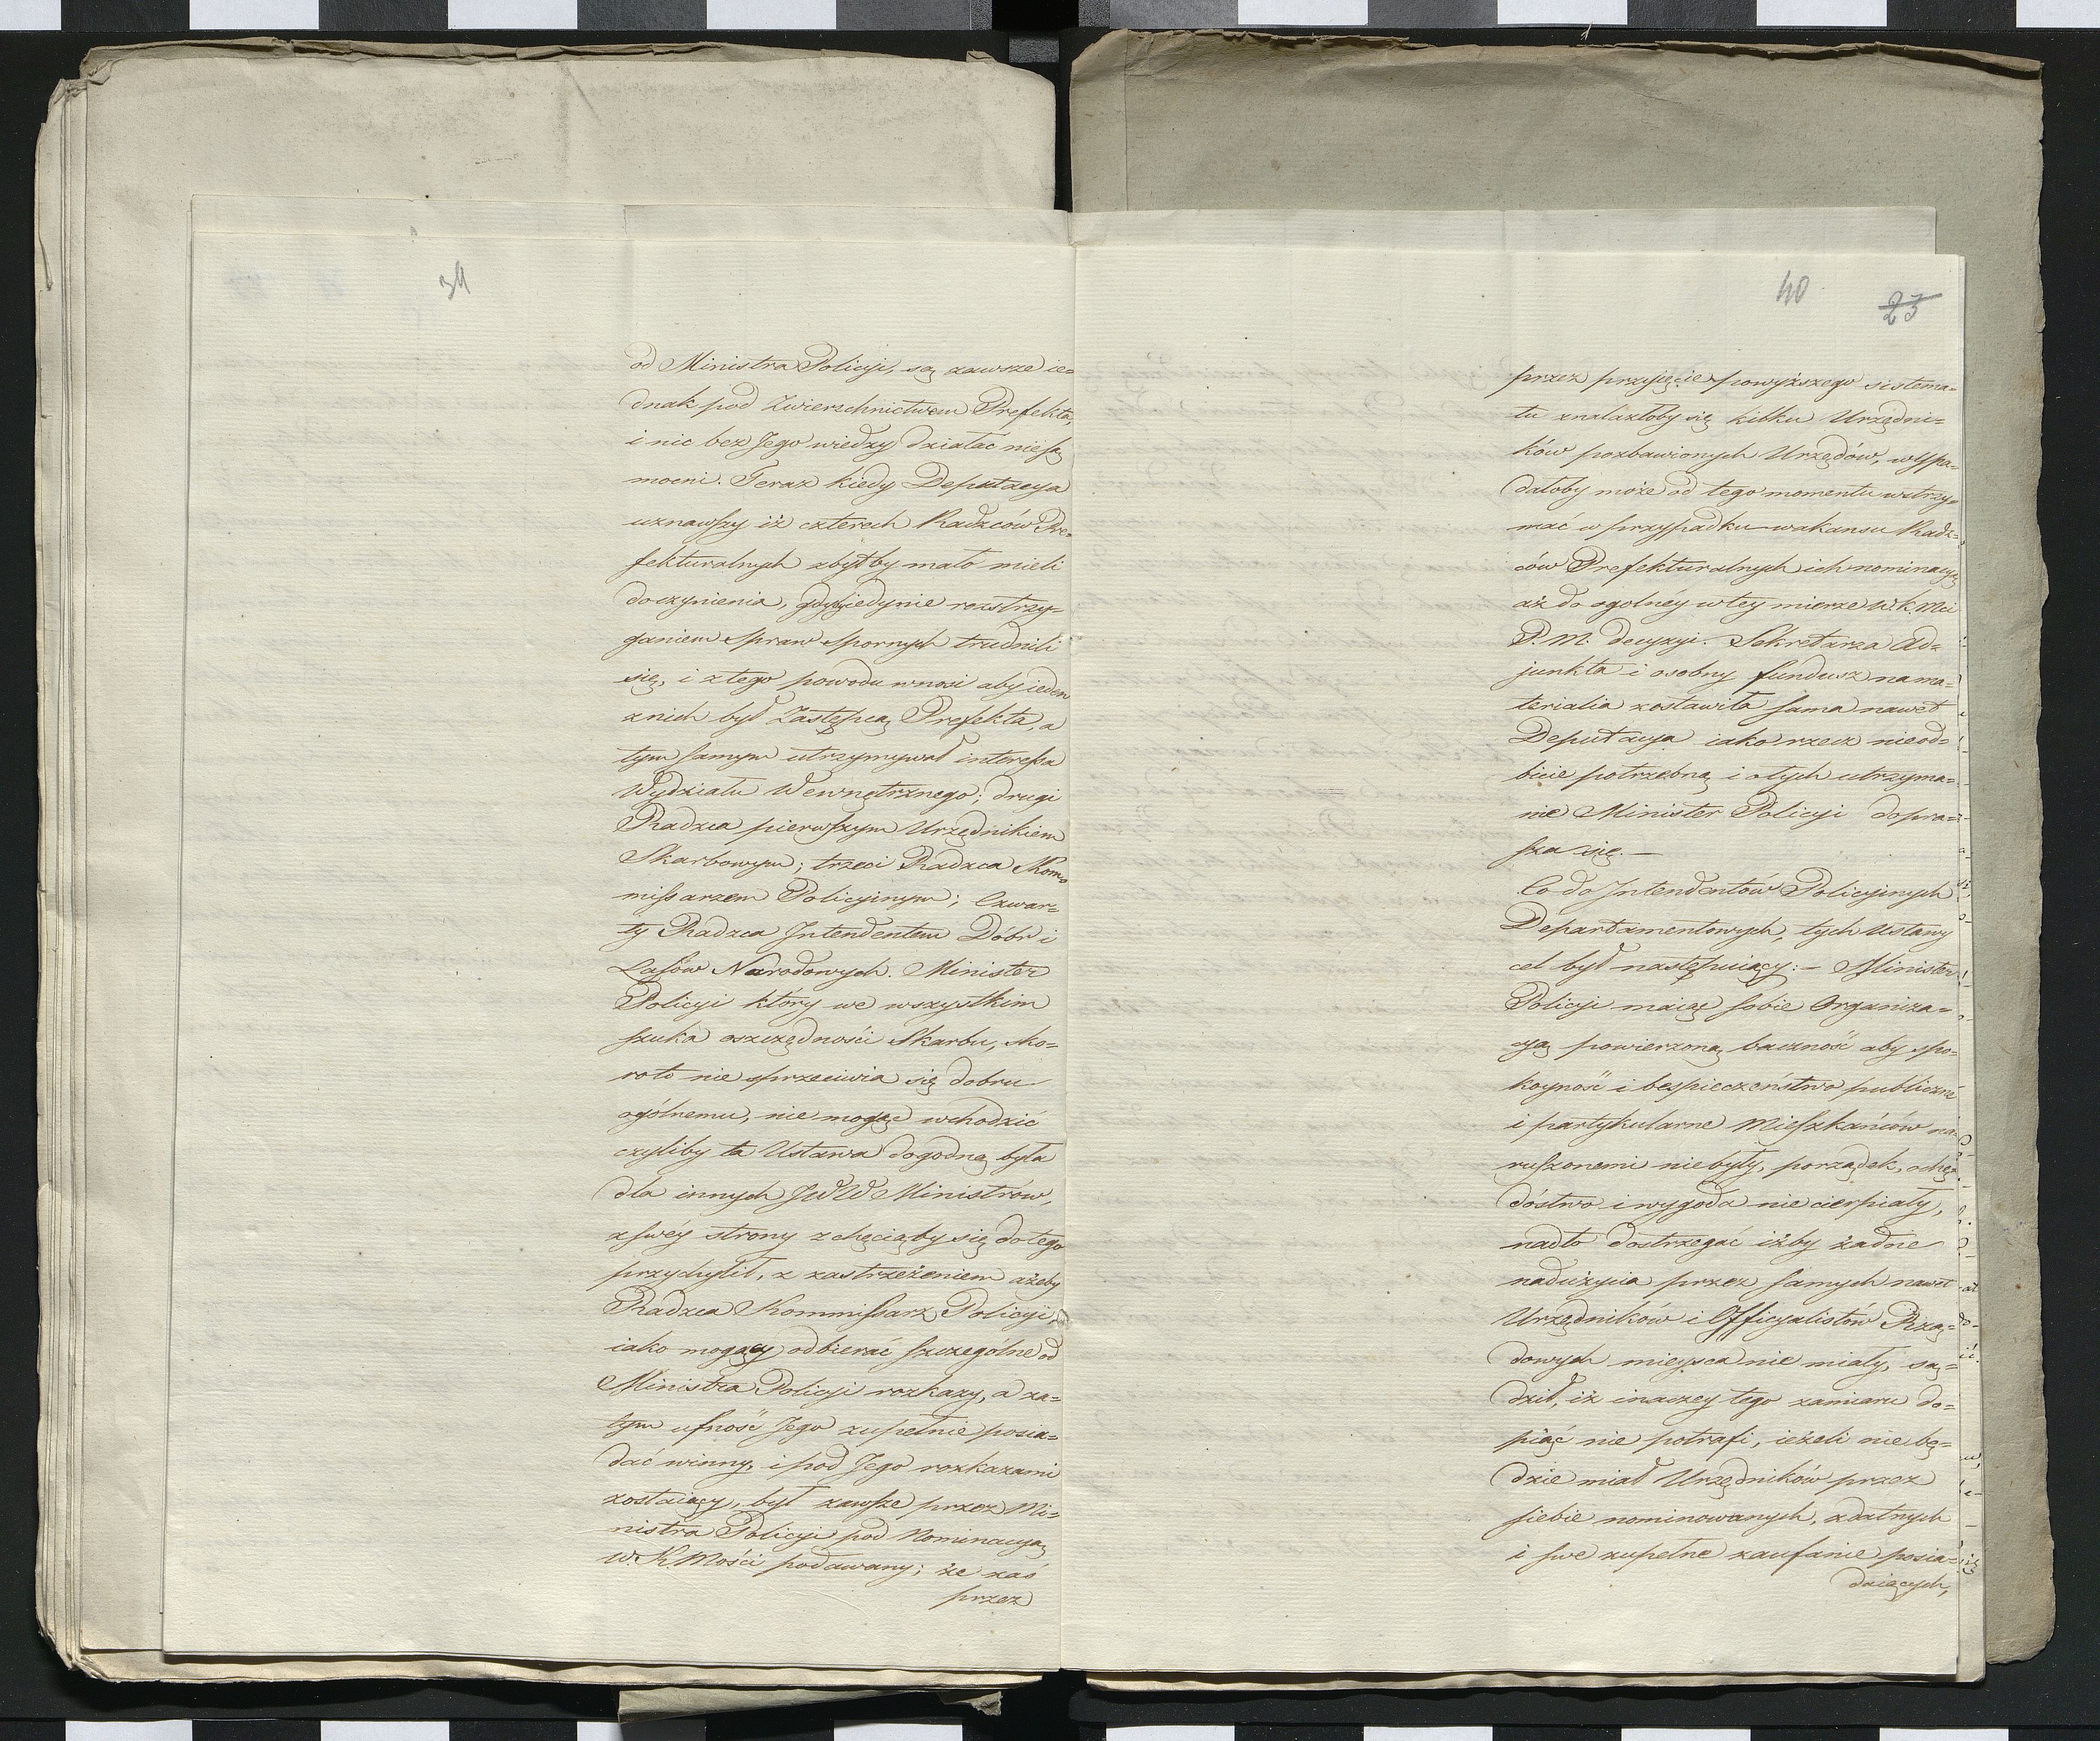 39
od Ministra Policyi, są zawsze ie=
dnak pod Zwierzchnictwem Prefekta,
i nic bez Jego wiedzy działać nie są
mocni. Teraz kiedy Deputacya
uznawszy iż czterech Radzców Pre=
fekturalnych zbyt by mało mieli
do czynienia, gdyby iedynie rozstrzy=
ganiem spraw spornych trudnili
się, i z tego powodu wnosi aby ieden
z nich był Zastępcą Prefekta, a
tym samym utrzymywał interessa
Wydziału Wewnętrznego; drugi
Radzca pierwszym Urzędnikiem
Skarbowym; trzeci Radzca Kom=
missarzem Policyinym; Czwar=
ty Radzca Intendentem Dóbr i
Lasów Narodowych. Minister
Policyi który we wszystkim
szuka oszczędności Skarbu, sko=
ro to nie sprzeciwia się dobru
ogólnemu, nie mogąc wchodzić
czyliby ta Ustawa dogodną była
dla innych JWW Ministrów,
z swéy strony z chęcią by się do tego
przychylił, z zastrzeżeniem ażeby
Radzca Kommissarz Policyi,
iako mogący odbierać szczególne od
Ministra Policyi rozkazy, a za=
tym ufność Jego zupełnie posia=
dać winny, i pod Jego rozkazami
zostaiący, był zawsze przez Mi=
nistra Policyi pod Nominacyą
W. K. Mości podawany; że zaś
przez
40
23
przez przyięcie powyższego sistema=
tu znalazłoby się kilku Urzędni=
ków pozbawionych Urzędów, wypa=
dałoby może od tego momentu wstrzy=
mać w przypadku wakansu Radz=
ców Prefekturalnych ich nominacyą
aż do ogólnéy w tey mierze W. K. Mci
P. M. decyzyi. Sekretarza Ad=
junkta i osobny fundusz na ma=
terialia zostawiła sama nawet
Deputacya iako rzecz nieod=
bicie potrzebną i o tych utrzyma=
nie Minister Policyi dopra=
sza się. —
Co do Intendentów Policyinych
Departamentowych, tych Ustawy
cel był następuiący: — Minister
Policyi maiąc sobie Organiza=
cyą powierzoną baczność aby spo=
koyność i bespieczeństwo publiczne
i partykularne Mieszkańców na=
ruszonemi nie były, porządek, ochę=
dóstwo i wygoda nie cierpiały,
nadto dostrzegać iżby żadne
nadużycia przez samych nawet
Urzędników i Officyalistów Rzą=
dowych mieysca nie miały, są=
dził, iż inaczey tego zamiaru do=
piąć nie potrafi, ieżeli nie bę=
dzie miał Urzędników przez
siebie nominowanych, zdatnych
i swe zupełne zaufanie posia=
daiących,